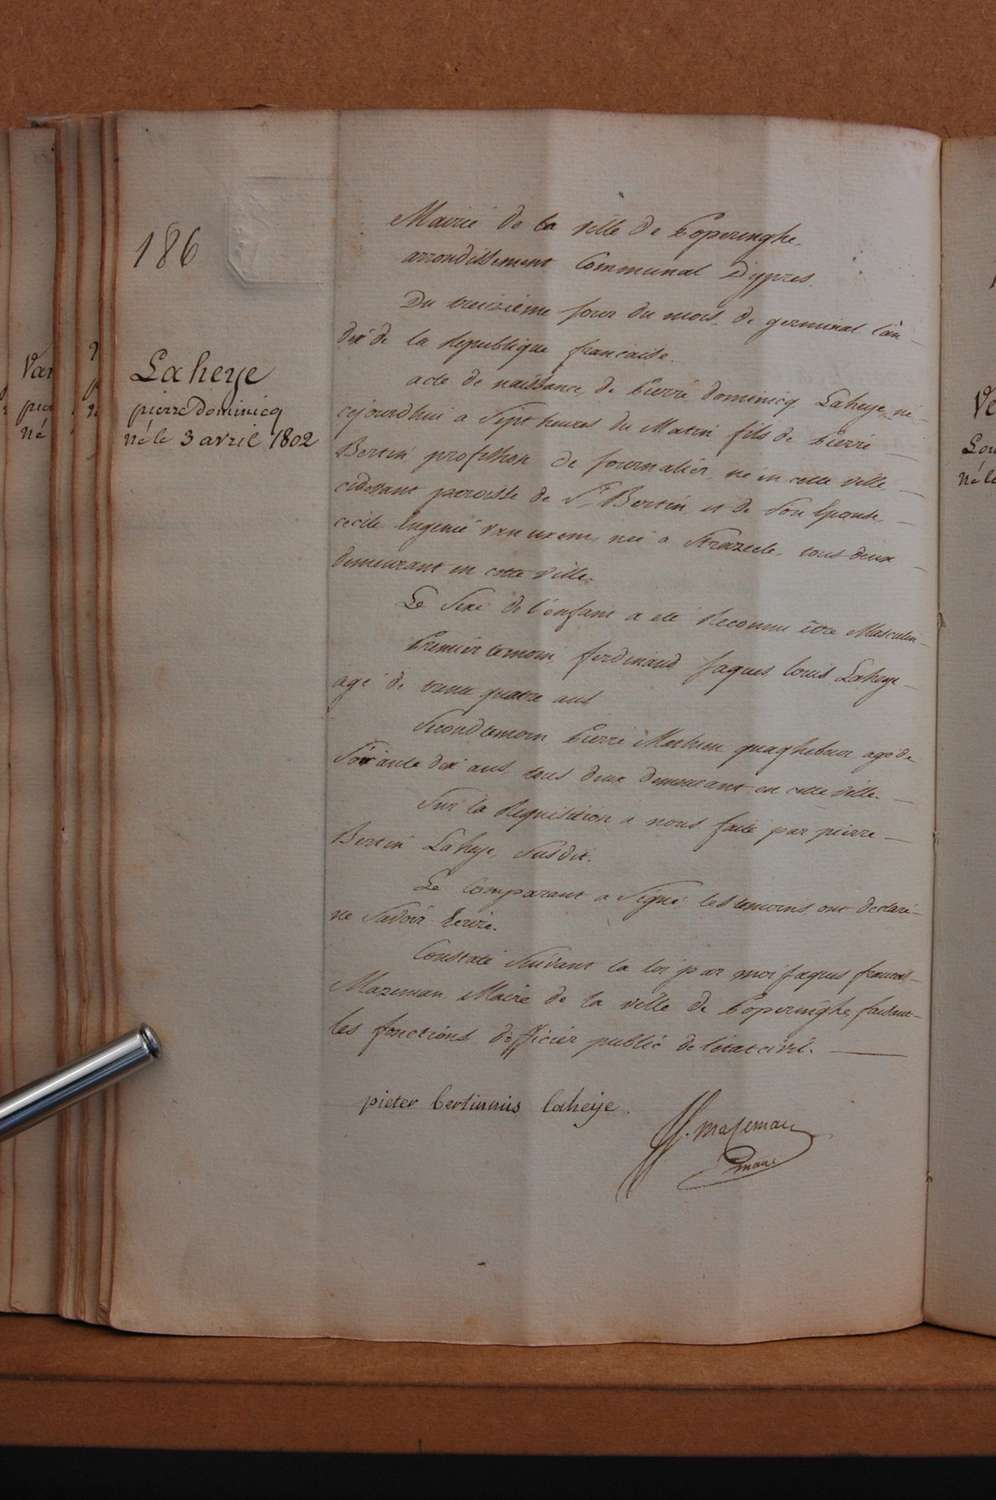 186
Laheye
pierre Dominicq
né le 3 avril 1802
Mairie de la ville de Poperinghe
arrondissement Communal Dÿpres.
Du treizieme jour du mois de germinal l'an
dix de la Republique francaise.
acte de naissance de Pierre dominicq Laheye né
cejourdhui a Sept heures du Matin fils de Pierre
Bertin profession de Journalier né en cette ville
cidevant paroisse de St Bertin et de Son Epouse
cecile Eugenie née a Strazeele tous deux
demeurant en cette ville.
Le Sexe de l'enfant a été Reconnu être Masculin
Premier temoin ferdinand Jaques louis Laheye
agé de trente quatre ans
Second temoin Pierre quaghebeur agé de
Soixante dix ans tous deux demeurant en cette ville.
Sur la Requisition a nous faite par pierre
Bertin Laheye Susdit.
Le Comparant a Signé les temoins ont declaré
ne Savoir Ecrire.
Constaté Suivant la loi par moi Jaques francois
Mazeman Maire de la ville de Poperinghe faisant
les fonctions d'officier public de l'etat civil.
pieter bertinnis laheije.
JJ. Mazeman
Var
pie
né
Ve
Lou
né le